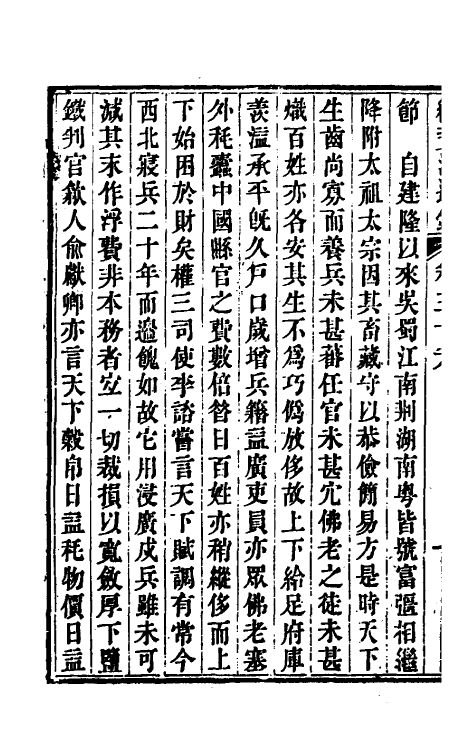 節　自建隆以來吳蜀江南荆湖南粵皆號富彊相繼
降附太祖太宗因其畜藏守以恭儉簡易方是時天下
生齒尚寡而養兵未甚蕃任官未甚冗佛老之徒未甚
熾百姓亦各安其生不爲巧僞放侈故上下給足府庫
羨溢承平旣久戶口歲增兵籍益廣吏員亦眾佛老塞
外耗蠹中國縣官之費數倍昔日百姓亦稍縱侈而上
下始困於財矣權三司使李諮嘗言天下賦調有常今
西北寢兵二十年而邊餽如故它用浸廣戍兵雖未可
減其末作浮費非本務者宜一切裁損以寬斂厚下鹽
鐵判官歙人俞獻卿亦言天下穀帛日益耗物價日益